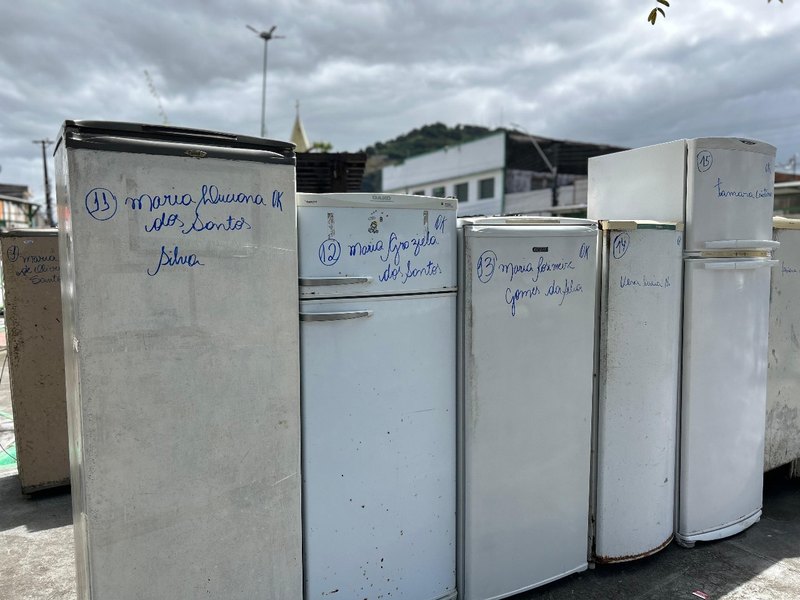 11 Maria Luciana OK
dos Santos
Silva
12 OK
Maria Graziela
dos Santos
13 Maria Rosimeire OK
Gomes da Silva
14
15
Tamara
9 Maria
de
Santos